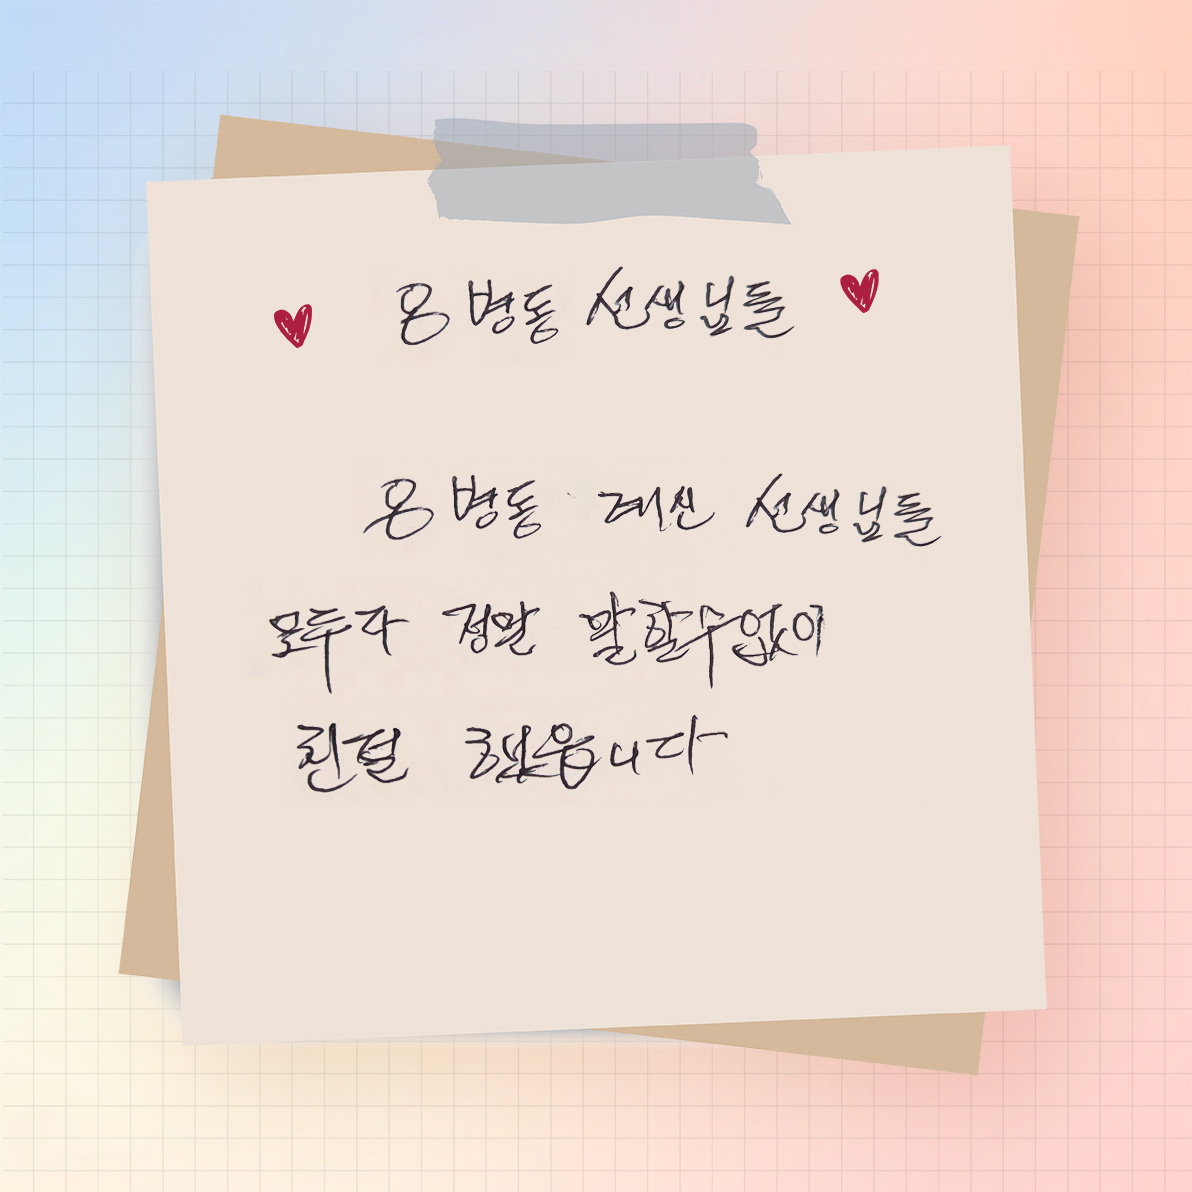 8 병동 선생님들
8 병동 계신 선생님들
모두가 정말 말할수없이
친절 했읍니다